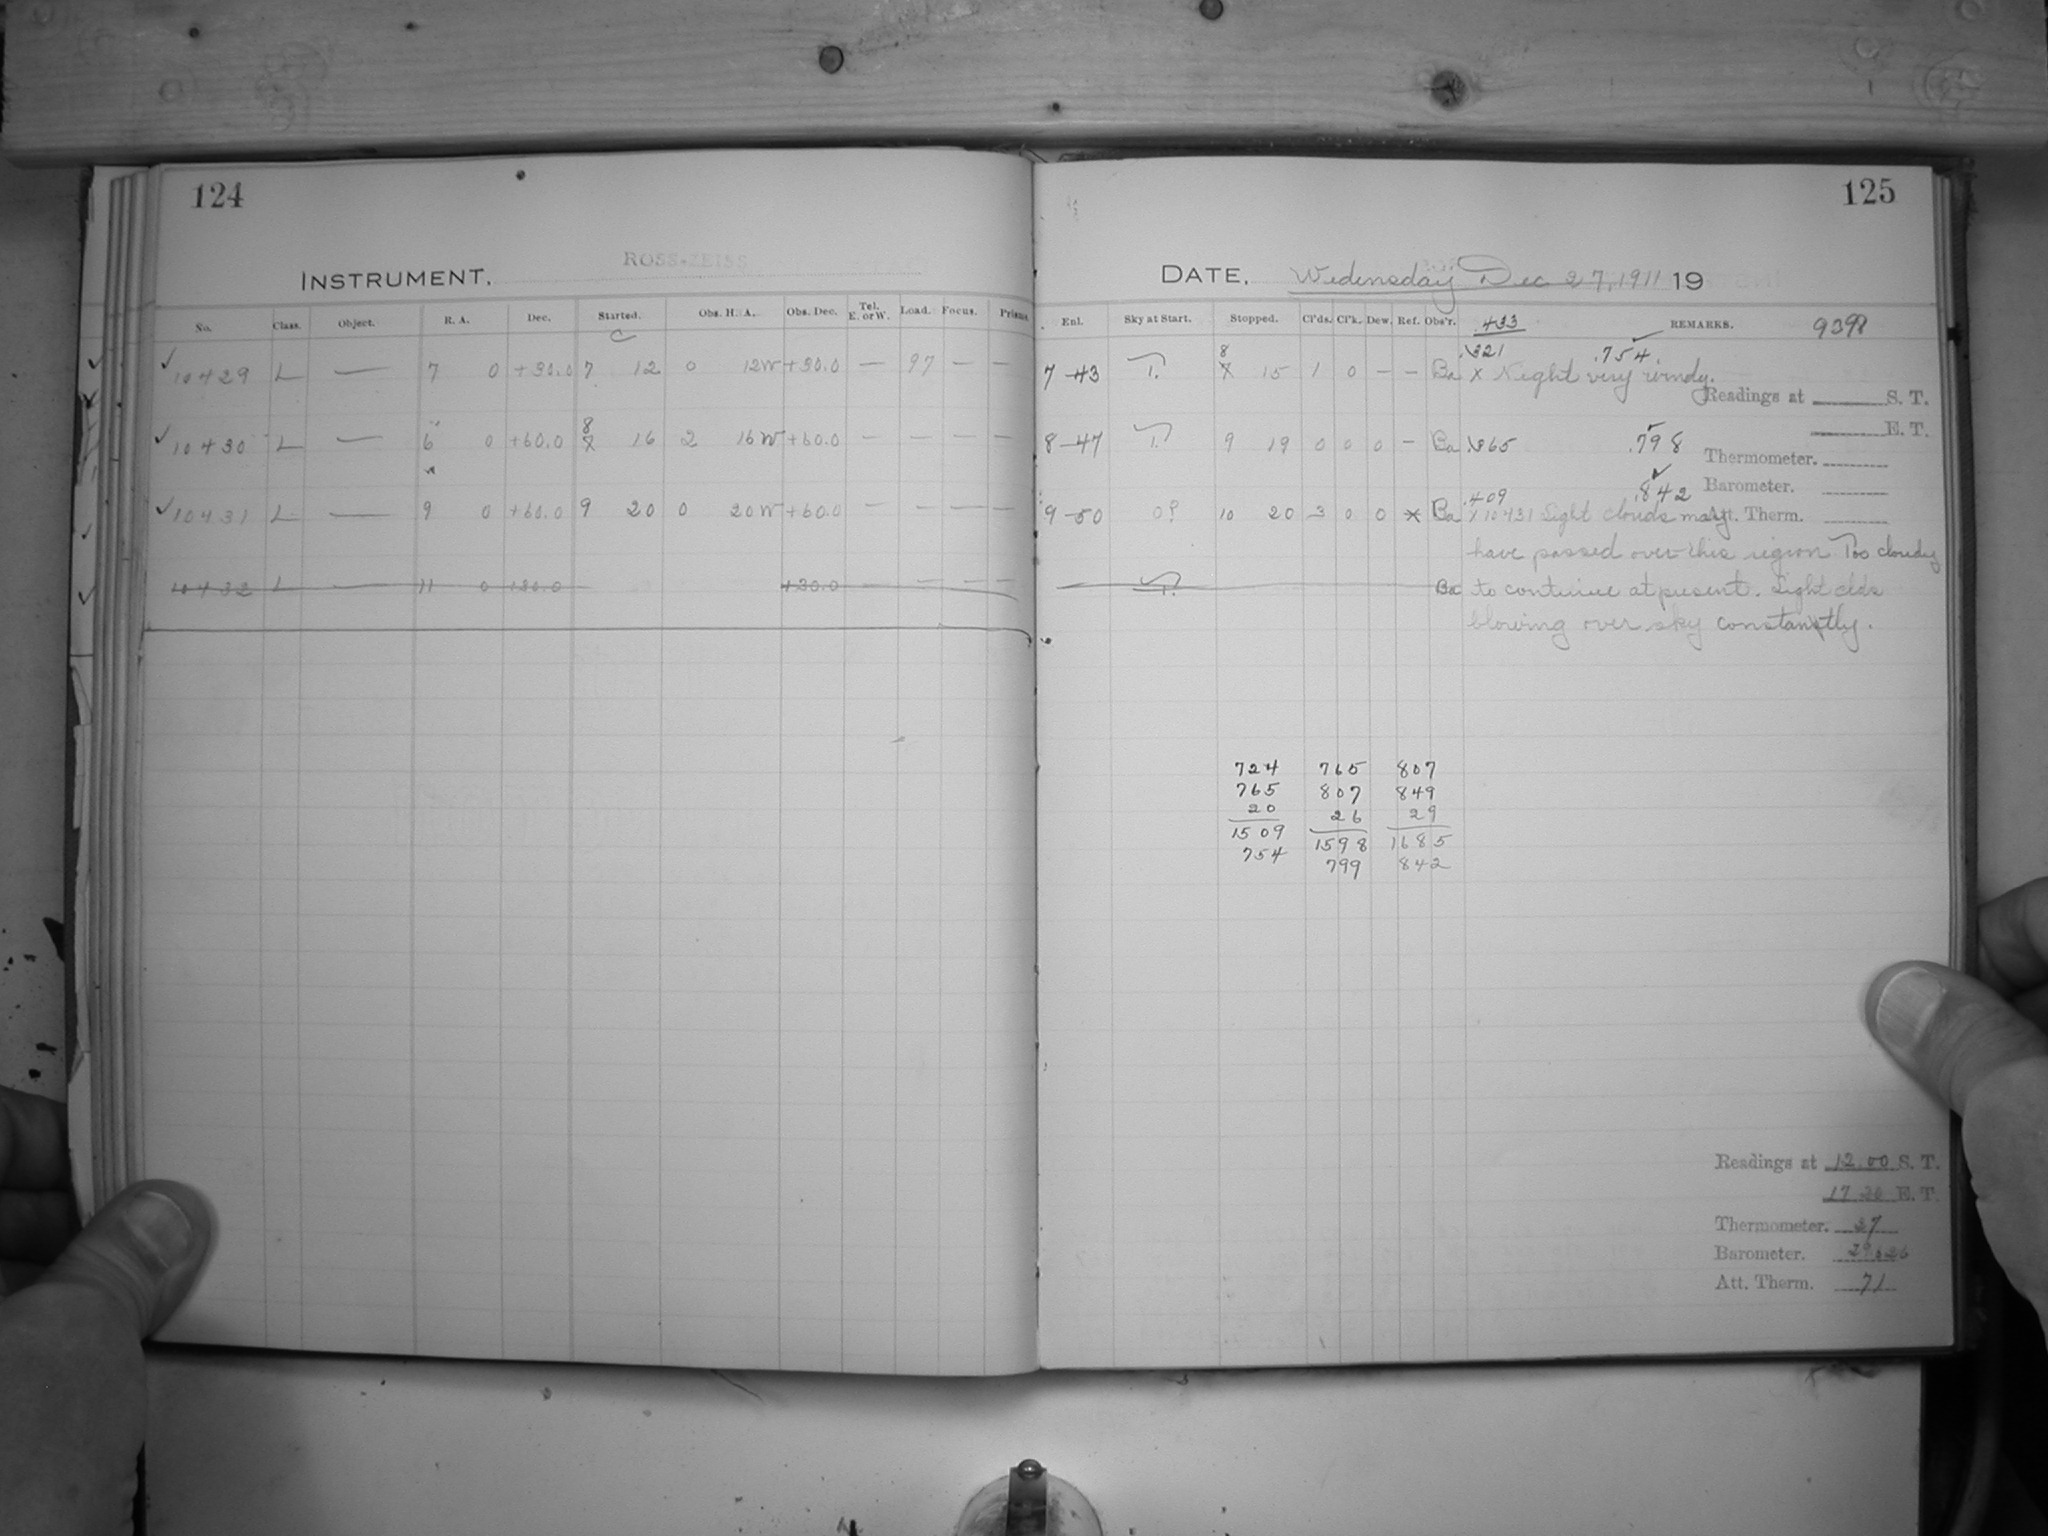 124
ROSS-ZEISS
INSTRUMENT.
No. Class. Object. R. A. Dec. Started. Obs. H. A. Obs. Dec. Tel. E. or W. Load. Focus. Prisms.
C
10429 L — 7 0 +30.0 7 12 0 12W +30.0 — 97 — —
10430 L — 6 0 +60.0 8 16 2 16W +60.0 — — — —
10431 L — 9 0 +60.0 9 20 0 20W +60.0 — — — —
10432 L — 11 0 +30.0 +30.0 — — — —
125
DATE. Wedensday Dec 27, 1911 19
Enl. Sky at Start. Stopped. Cl'ds. Cl'k. Dew. Ref. Obs'r. .433 REMARKS. 9398
.321 .754
7-43 8 15 1 0 — — Ba x Night very windy.
Readings at S. T.
E. T.
8-47 9 19 0 0 0 — Ba .365 .798
Thermometer.
Barometer.
.409 .842
9-50 10 20 3 0 0 x Ba x 10431 Light clouds may
Att. Therm.
have passed over this region Too cloudy
Ba to continue at present. Light clds
blowing over sky constantly.
724 765 807
765 807 849
20 26 29
1509 1598 1685
754 799 842
Readings at 12 00 S. T.
17 E. T.
Thermometer. 37
Barometer.
Att. Therm. 71